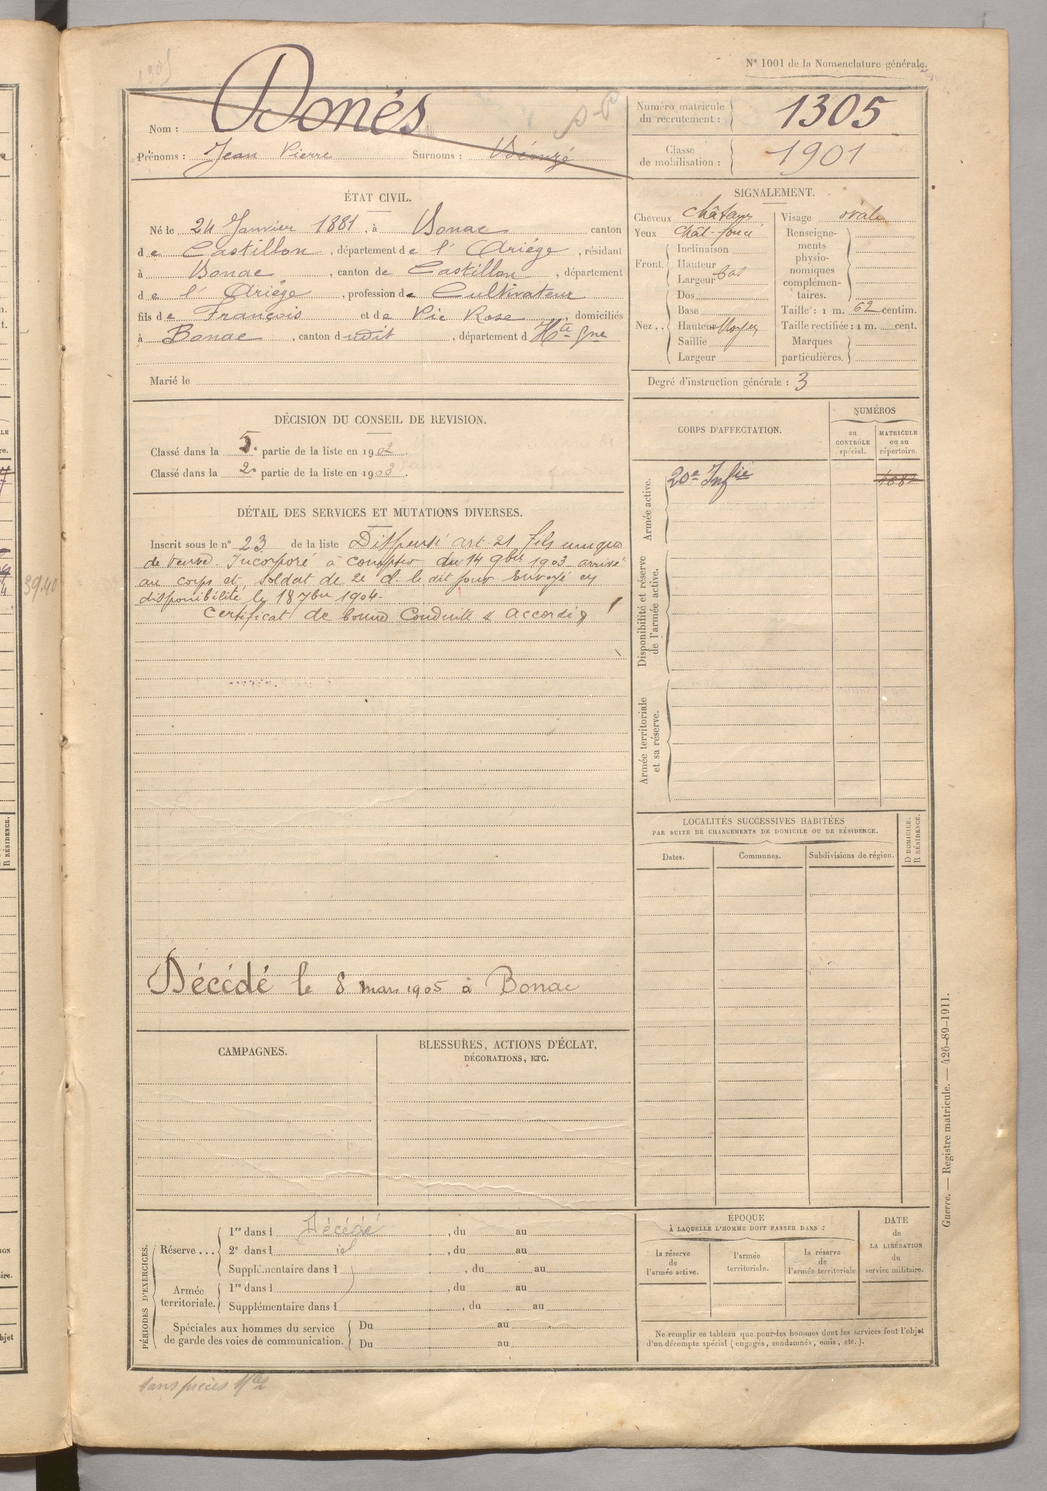 N° 1001 de la Nomenclature générale.
Nom : Donés
Prénoms : Jean Pierre Surnoms :
Numéro matricule du recrutement : 1305
Classe de mobilisation : 1901
ÉTAT CIVIL.
Né le 24 Janvier 1881, à Bonac canton
de Castillon, département de l'Ariége, résidant
à Bonac, canton de Castillon, département
de l'Ariége, profession de Cultivateur
fils de François et de Pic Rose, domiciliés
à Bonac, canton dudit, département d Hte Gne
Marié le
SIGNALEMENT.
Cheveux châtains
Yeux chât-foncé
Front. Inclinaison
Hauteur
Largeur bas
Nez .. Dos
Base
Hauteur Moyen
Saillie
Largeur
Visage ovale
Renseignements physionomiques complémentaires.
Taille : 1 m. 62 centim.
Taille rectifiée : 1 m. cent.
Marques particulières.
Degré d'instruction générale : 3
DÉCISION DU CONSEIL DE REVISION.
Classé dans la 5e partie de la liste en 1902
Classé dans la 2e partie de la liste en 1903
DÉTAIL DES SERVICES ET MUTATIONS DIVERSES.
Inscrit sous le n° 23 de la liste Dispensé art 21 fils unique
de veuve. Incorporé à compter du 14 9bre 1903 arrivé
au corps et soldat de 2e cl. le dit jour Envoyé en
disponibilité le 18 7bre 1904.
Certificat de bonne Conduite accordé
Décédé le 8 mars 1905 à Bonac
CORPS D'AFFECTATION.
NUMÉROS
au CONTRÔLE spécial.
MATRICULE ou au répertoire.
Armée active.
20e Infie
Disponibilité et réserve de l'armée active.
Armée territoriale et sa réserve.
LOCALITÉS SUCCESSIVES HABITÉES
PAR SUITE DE CHANGEMENTS DE DOMICILE OU DE RÉSIDENCE.
Dates.
Communes.
Subdivisions de région.
D DOMICILE.
R RÉSIDENCE.
CAMPAGNES.
BLESSURES, ACTIONS D'ÉCLAT,
DÉCORATIONS, ETC.
PÉRIODES D'EXERCICES.
Réserve ... 1re dans l Décédé , du au
2e dans l id , du au
Supplémentaire dans l , du au
Armée territoriale. 1re dans l , du au
Supplémentaire dans l , du au
Spéciales aux hommes du service Du au
de garde des voies de communication. Du au
ÉPOQUE
À LAQUELLE L'HOMME DOIT PASSER DANS :
la réserve de l'armée active.
l'armée territoriale.
la réserve de l'armée territoriale
DATE
de
LA LIBÉRATION
du
service militaire.
Ne remplir ce tableau que pour les hommes dont les services font l'objet
d'un décompte spécial (engagés, condamnés, omis, etc.).
Guerre. — Registre matricule. — 426-89-1911.